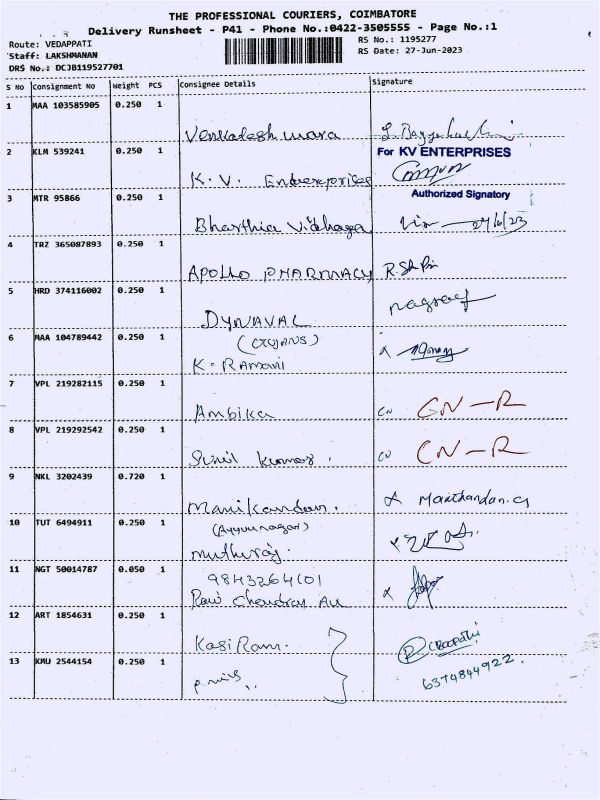 THE PROFESSIONAL COURIERS, COIMBATORE
Delivery Runsheet - P41 - Phone No.:0422-3505555 - Page No.:1
Route: VEDAPPATI
Staff: LAKSHMANAN
DRS No.: DCJB119527701
RS No.: 1195277
RS Date: 27-Jun-2023
S No Consignment No Weight PCS Consignee Details Signature
1 MAA 103585905 0.250 1
Venkatesh wara
2 KLM 539241 0.250 1 For KV ENTERPRISES
K. V. Enterprises
Authorized Signatory
3 MTR 95866 0.250 1
Bharthia 27/6/23
4 TRZ 365087893 0.250 1
APOLLO PHARMACY
5 HRD 374116002 0.250 1
DYNAVAC
6 MAA 104789442 0.250 1
K. RAMANI
7 VPL 219282115 0.250 1
Ambika CN CN-R
8 VPL 219292542 0.250 1
Sunil Kumar. CN CN-R
9 NKL 3202439 0.720 1
Manikandan. Manthandan.G
10 TUT 6494911 0.250 1
(Ayyunagar)
Muthuraj.
11 NGT 50014787 0.050 1
9843264101
Ravi Chandran
12 ART 1854631 0.250 1
Kasi Ram.
13 KMU 2544154 0.250 1
6374844922.